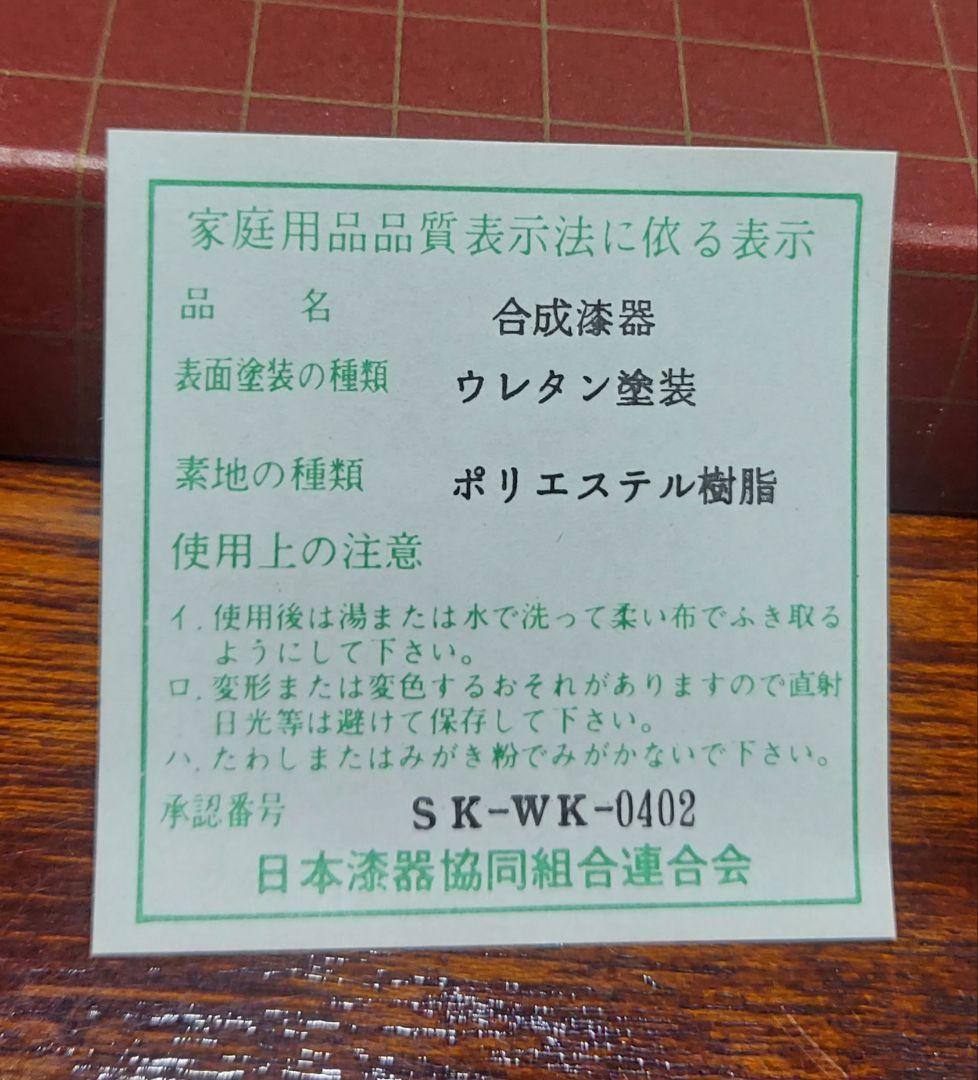 家庭用品品質表示法に依る表示
品名 合成漆器
表面塗装の種類 ウレタン塗装
素地の種類 ポリエステル樹脂
使用上の注意
イ.使用後は湯または水で洗って柔い布でふき取る
ようにして下さい。
ロ.変形または変色するおそれがありますので直射
日光等は避けて保存して下さい。
ハ.たわしまたはみがき粉でみがかないで下さい。
承認番号 SK-WK-0402
日本漆器協同組合連合会